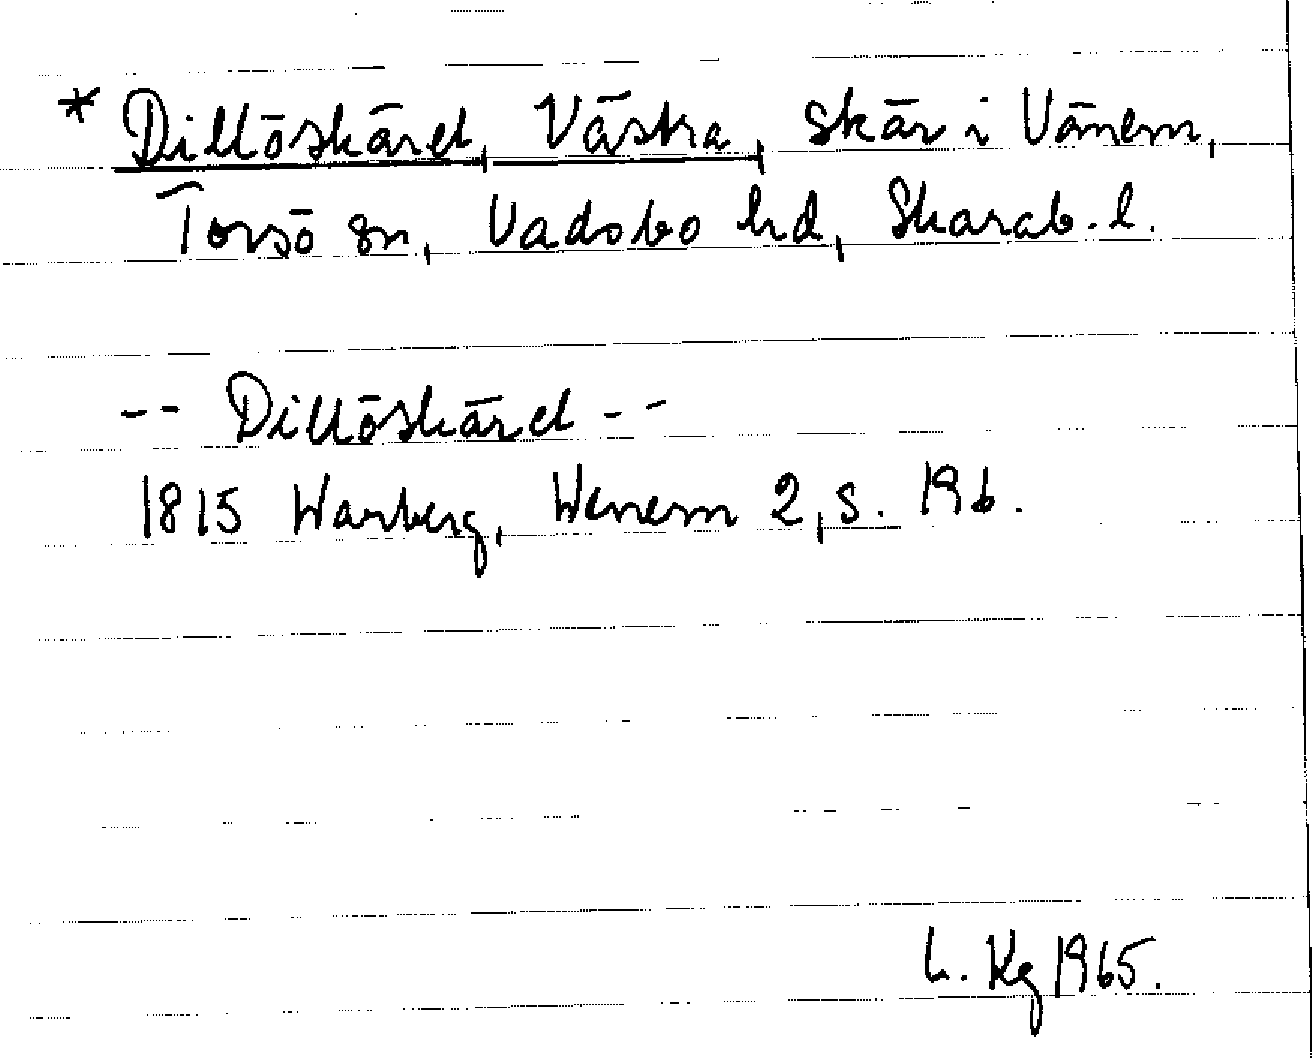 * Dillöskäret, Västra, skär i Vänern,
Torsö sn, Vadsbo hd, Skarab. l.
-- Dillöskäret --
1815 Warberg, Wenern 2, s. 196.
L. Kg 1965.